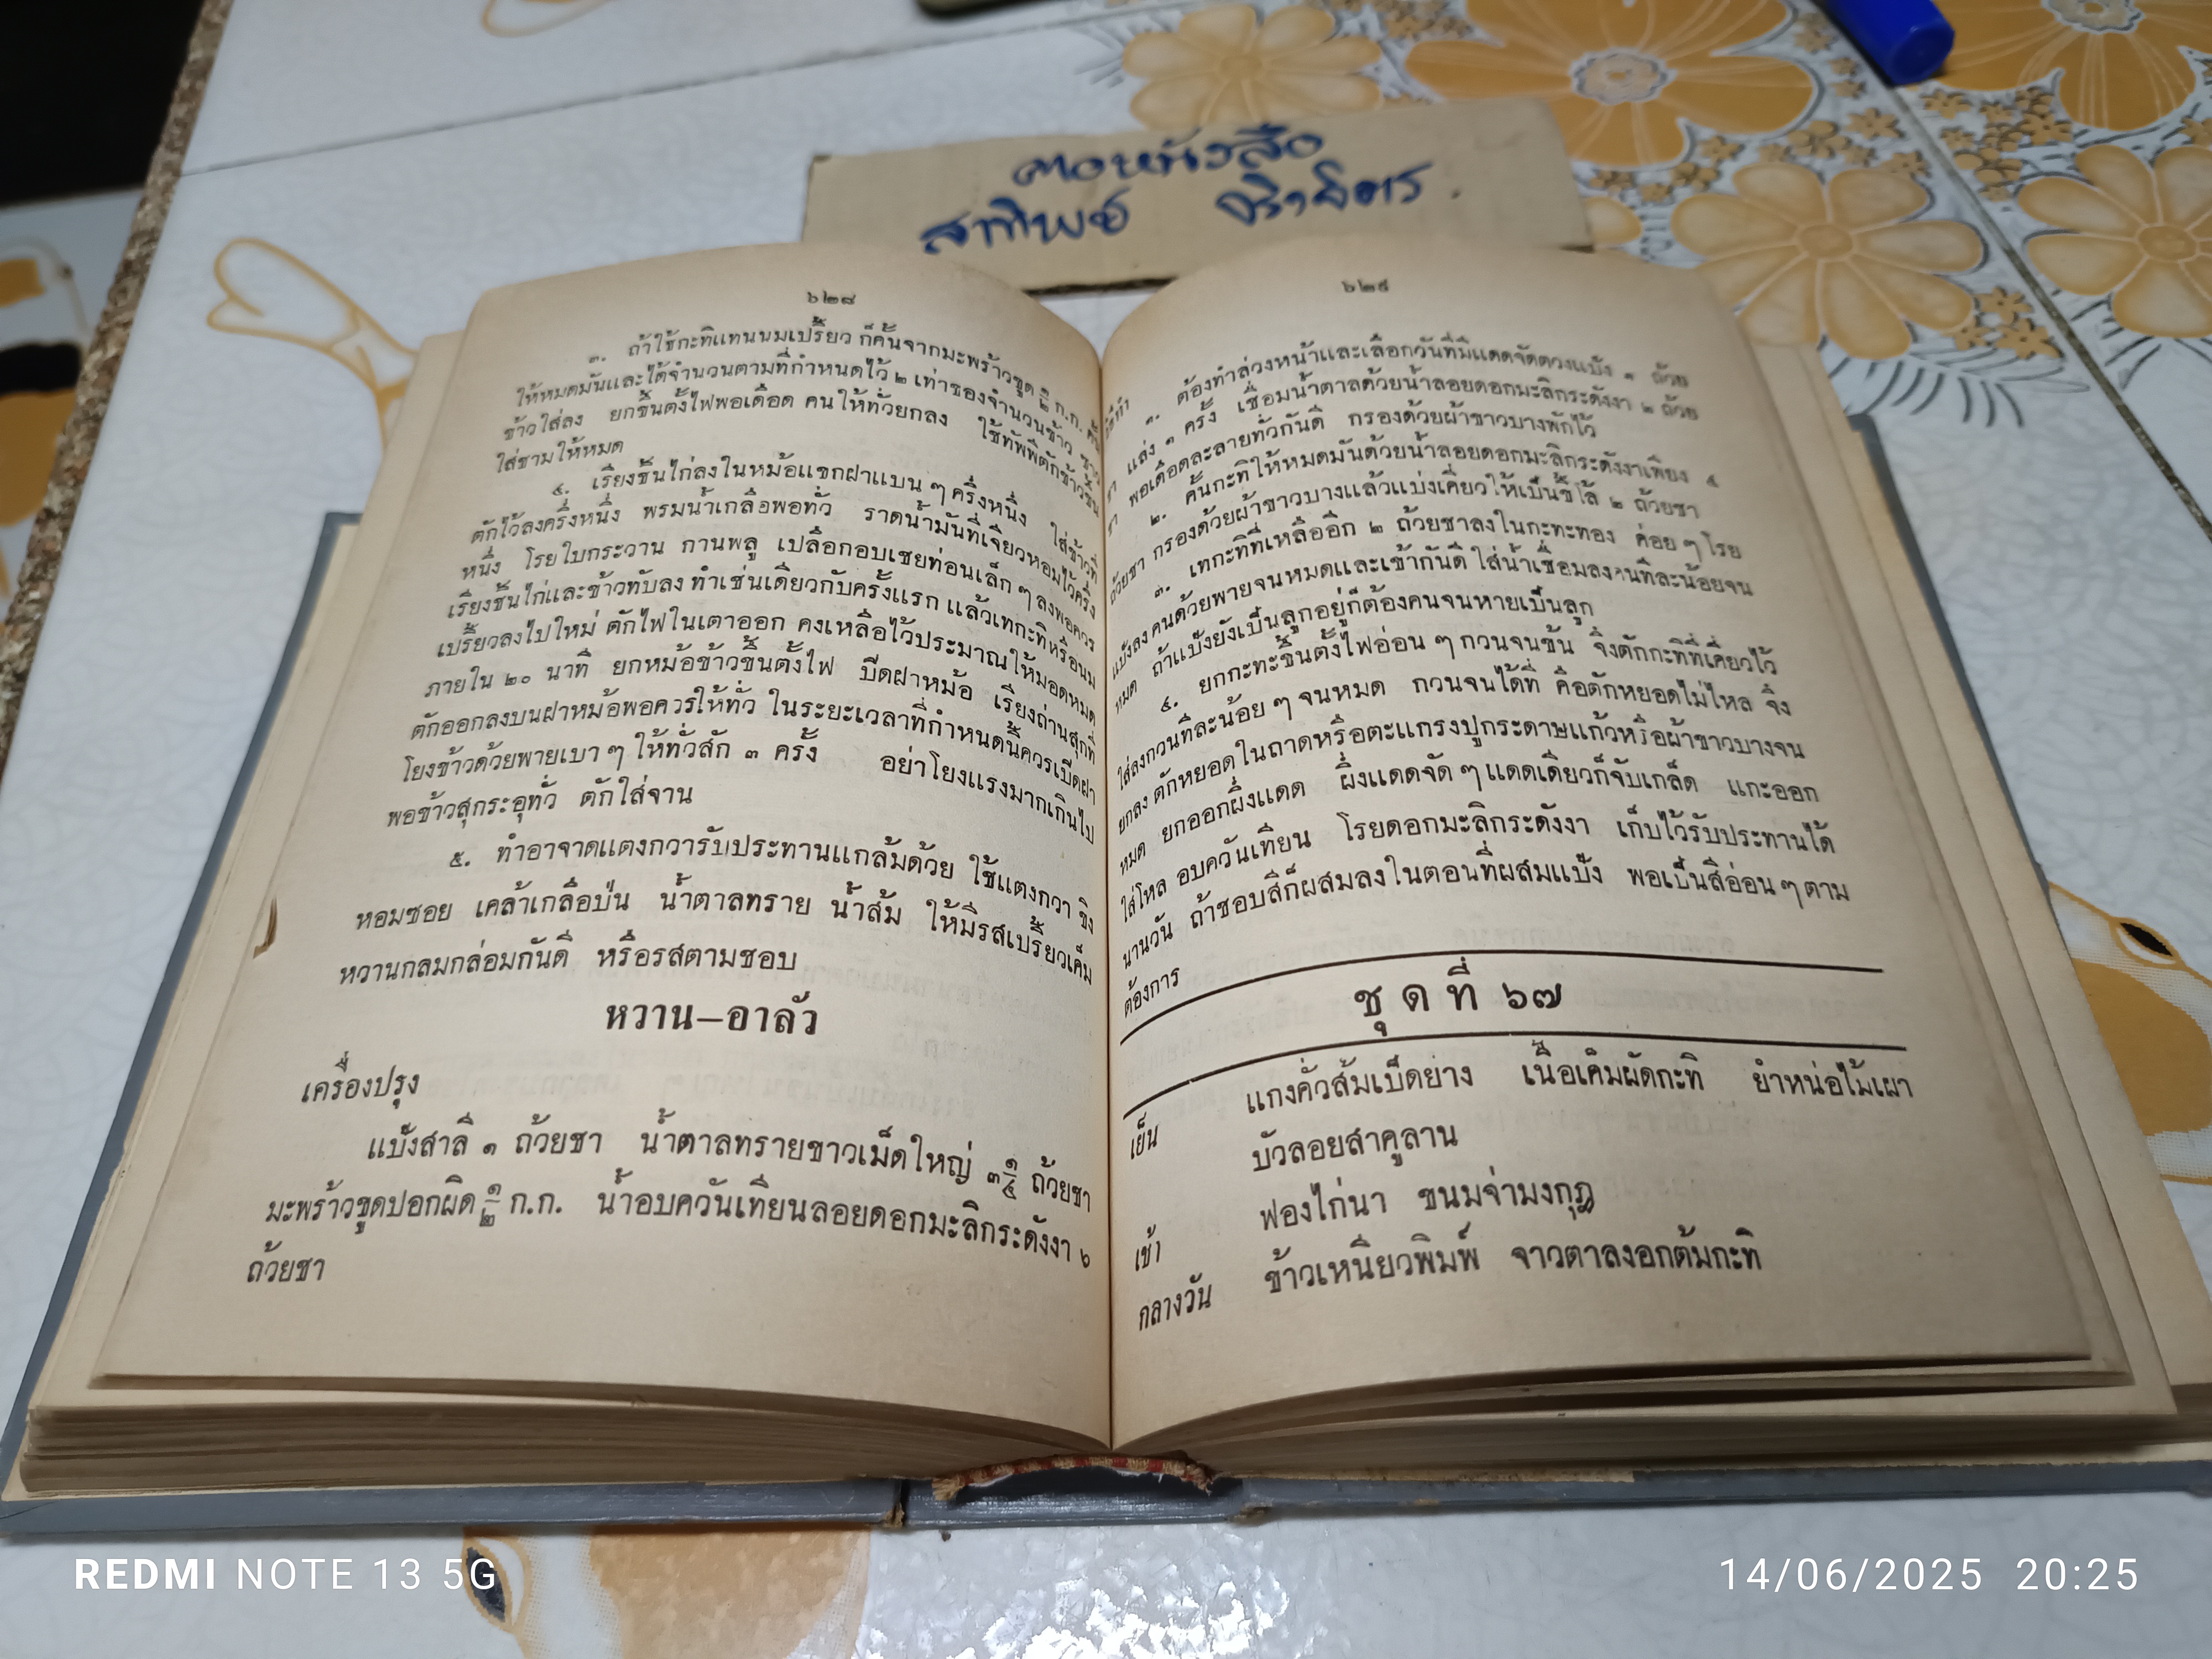 คอหนังสือ
สาทิพย์
๖๒๘
๓. ถ้าใช้กะทิแทนนมเปรี้ยว ก็คั้นจากมะพร้าวขูด ๑/๒ ก.ก. คั้น
ให้หมดมันและได้จำนวนตามที่กำหนดไว้ ๒ เท่าของจำนวนข้าว ซาว
ข้าวใส่ลง ยกขึ้นตั้งไฟพอเดือด คนให้ทั่วยกลง ใช้ทัพพีตักข้าวขึ้น
ใส่ชามให้หมด
๔. เรียงชิ้นไก่ลงในหม้อแขกฝาแบน ๆ ครึ่งหนึ่ง ใส่ข้าวที่
ตักไว้ลงครึ่งหนึ่ง พรมน้ำเกลือพอทั่ว ราดน้ำมันที่เจียวหอมไว้ครึ่ง
หนึ่ง โรยใบกระวาน กานพลู เปลือกอบเชยท่อนเล็ก ๆ ลงพอควร
เรียงชิ้นไก่และข้าวทับลง ทำเช่นเดียวกับครั้งแรก แล้วเทกะทิหรือนม
เปรี้ยวลงไปใหม่ ตักไฟในเตาออก คงเหลือไว้ประมาณให้มอดหมด
ภายใน ๒๐ นาที ยกหม้อข้าวขึ้นตั้งไฟ ปิดฝาหม้อ เรียงถ่านสุกที่
ตักออกลงบนฝาหม้อพอควรให้ทั่ว ในระยะเวลาที่กำหนดนี้ควรเปิดฝา
โยงข้าวด้วยพายเบา ๆ ให้ทั่วสัก ๓ ครั้ง อย่าโยงแรงมากเกินไป
พอข้าวสุกระอุทั่ว ตักใส่จาน
๕. ทำอาจาดแตงกวารับประทานแกล้มด้วย ใช้แตงกวา ขิง
หอมซอย เคล้าเกลือป่น น้ำตาลทราย น้ำส้ม ให้มีรสเปรี้ยวเค็ม
หวานกลมกล่อมกันดี หรือรสตามชอบ
หวาน–อาลัว
เครื่องปรุง
แป้งสาลี ๑ ถ้วยชา น้ำตาลทรายขาวเม็ดใหญ่ ๓ ๑/๔ ถ้วยชา
มะพร้าวขูดปอกผิด ๑/๒ ก.ก. น้ำอบควันเทียนลอยดอกมะลิกระดังงา ๖
ถ้วยชา
๖๒๙
วิธีทำ
๑. ต้องทำล่วงหน้าและเลือกวันที่มีแดดจัดตวงแป้ง ๑ ถ้วย
ชา แล่ง ๓ ครั้ง เชื่อมน้ำตาลด้วยน้ำลอยดอกมะลิกระดังงา ๒ ถ้วย
ชา พอเดือดละลายทั่วกันดี กรองด้วยผ้าขาวบางพักไว้
๒. คั้นกะทิให้หมดมันด้วยน้ำลอยดอกมะลิกระดังงาเพียง ๔
ถ้วยชา กรองด้วยผ้าขาวบางแล้วแบ่งเคี่ยวให้เป็นขี้โล้ ๒ ถ้วยชา
๓. เทกะทิที่เหลืออีก ๒ ถ้วยชาลงในกะทะทอง ค่อย ๆ โรย
แป้งลง คนด้วยพายจนหมดและเข้ากันดี ใส่น้ำเชื่อมลงานทีละน้อยจน
หมด ถ้าแป้งยังเป็นลูกอยู่ก็ต้องคนจนหายเป็นลูก
๔. ยกกะทะขึ้นตั้งไฟอ่อน ๆ กวนจนข้น จึงตักกะทิที่เคี่ยวไว้
ใส่ลงกวนทีละน้อย ๆ จนหมด กวนจนได้ที่ คือตักหยอดไม่ไหล จึง
ยกลง ตักหยอดในถาดหรือตะแกรงปูกระดาษแก้วหรือผ้าขาวบางจน
หมด ยกออกผึ่งแดด ผึ่งแดดจัด ๆ แดดเดียวก็จับเกล็ด แกะออก
ใส่โหล อบควันเทียน โรยดอกมะลิกระดังงา เก็บไว้รับประทานได้
นานวัน ถ้าชอบสีก็ผสมลงในตอนที่ผสมแป้ง พอเป็นสีอ่อน ๆ ตาม
ต้องการ
ชุดที่ ๖๗
เย็น แกงคั่วส้มเป็ดย่าง เนื้อเค็มผัดกะทิ ยำหน่อไม้เผา
บัวลอยสาคูลาน
เช้า ฟองไก่นา ขนมจ่ามงกุฎ
กลางวัน ข้าวเหนียวพิมพ์ จาวตาลงอกต้มกะทิ
REDMI NOTE 13 5G
14/06/2025 20:25